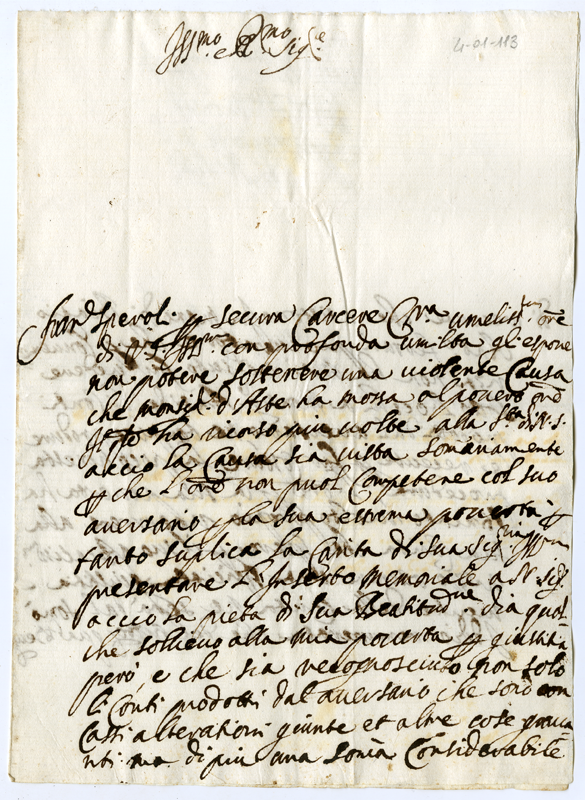 Ill.mo e R.mo Sig.e
4-01-113
Fran.co Speroli p secura Carcere C.ra umiliss. ore
di V. S. Ill.ma con profonda umilta gli espone
non potere sostenere una violente Causa
che monsig. d'Aste ha mossa al povero ord.
ha ricorso piu volte alla S.tta di N. S.
accio la Causa sia vista somariamente
p che l'ord non puol Competere col suo
aversario p la sua estrema poverta p
tanto suplica la Carita di sua Sig.ria Ill.ma
presentare l'Inserto memoriale a N. Sig.
accio la pieta di Sua Beatitudne dia qual
che sollievo alla mia poverta p giustitia
però, e che sia recognosciuto non solo
li Conti prodotti dal aversario che sono con
Casti alterationi giunte et altre cose grava
nti ma di piu una soma Considerabile